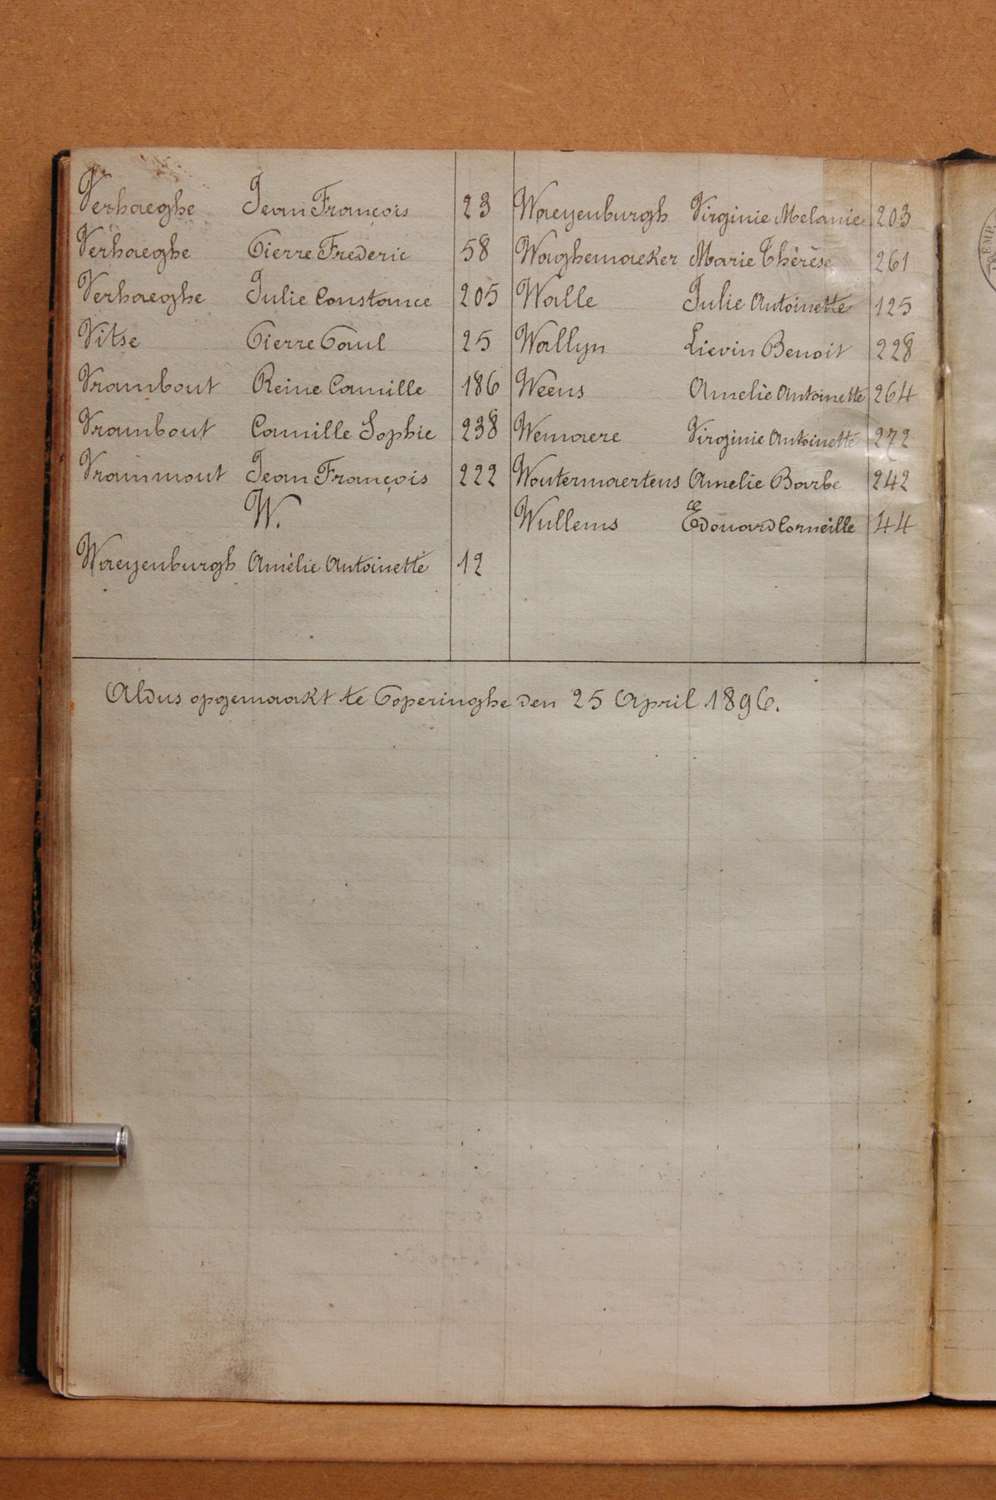 Verhaeghe Jean François 23
Verhaeghe Pierre Frederic 58
Verhaeghe Julie Constance 205
Vitse Pierre Paul 25
Vrambout Reine Camille 186
Vrambout Camille Sophie 238
Vrammout Jean François 222
W.
Waeyenburgh Amélie Antoinette 12
Waeyenburgh Virginie Melanie 203
Waghemaeker Marie Thérèse 261
Walle Julie Antoinette 125
Wallyn Lievin Benoit 228
Weens Amelie Antoinette 264
Wemaere Virginie Antoinette 272
Woutermaertens Amelie Barbe 242
Wullems Edouard Corneille 44
Aldus opgemaakt te Poperinghe den 25 April 1896.